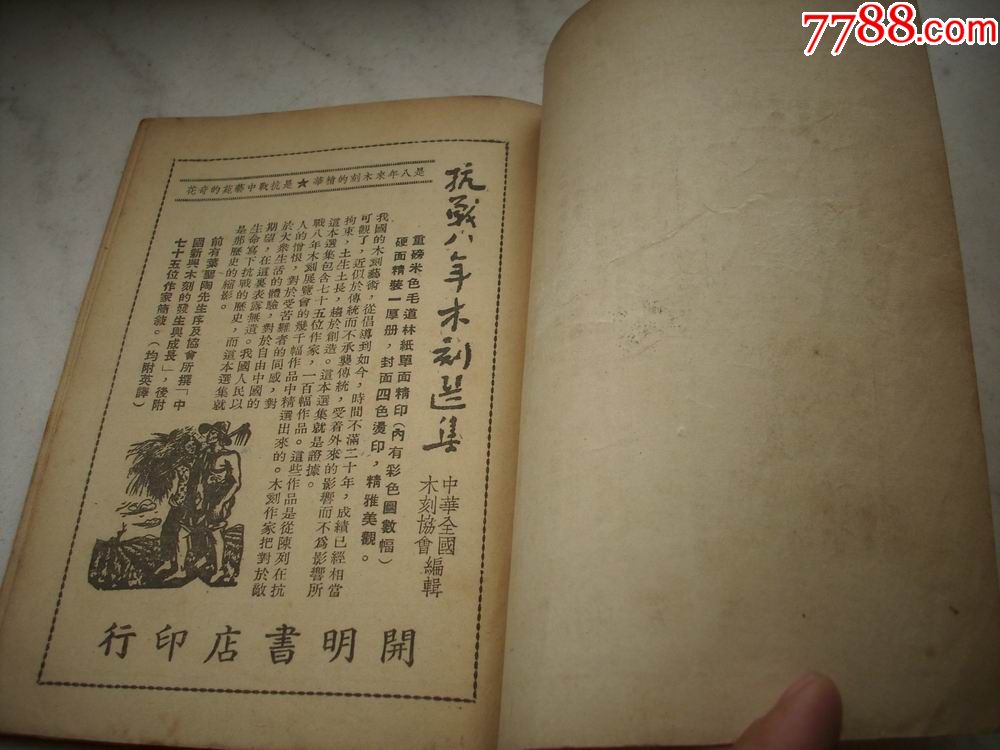 7788.com
是八年來木刻的精華★是抗戰中藝苑的奇花
抗戰八年木刻選集
中華全國
木刻協會 編輯
重磅米色毛道林紙單面精印(內有彩色圖數幅)
硬面精裝一厚册,封面四色燙印,精雅美觀。
我國的木刻藝術,從倡導到如今,時間不滿二十年,成績已經相當
可觀了,近似於傳統而不承襲傳統,受着外來的影響而不爲影響所
拘束,土生土長,趨於創造。這本選集就是證據。
這本選集包含七十五位作家,一百幅作品。這些作品是從陳列在抗
戰八年木刻展覽會的幾千幅作品中精選出來的。木刻作家把對於敵
人的憎恨,對於受苦難者的同感,對
於大衆生活的體驗,對於自由中國的
期望,在這裏表露無遺。我國人民以
生命寫下抗戰的歷史,而這本選集就
是那歷史的縮影。
前有葉聖陶先生序及協會所撰「中
國新興木刻的發生與成長」,後附
七十五位作家簡敍。(均附英譯)
開明書店印行